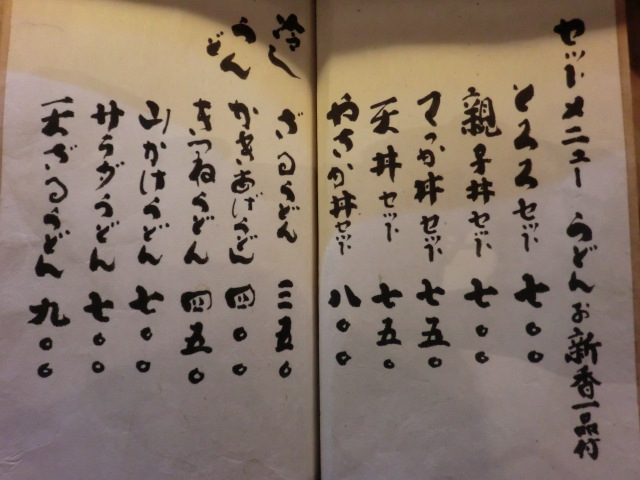 セットメニュー うどんお新香一品付
とろろセット 七〇〇
親子丼セット 七〇〇
てっか丼セット 七五〇
天丼セット 七五〇
やさか丼セット 八〇〇
冷しうどん
ざるうどん 三五〇
かきあげうどん 四〇〇
きつねうどん 四五〇
山かけうどん 七〇〇
サラダうどん 七〇〇
天ざるうどん 九〇〇